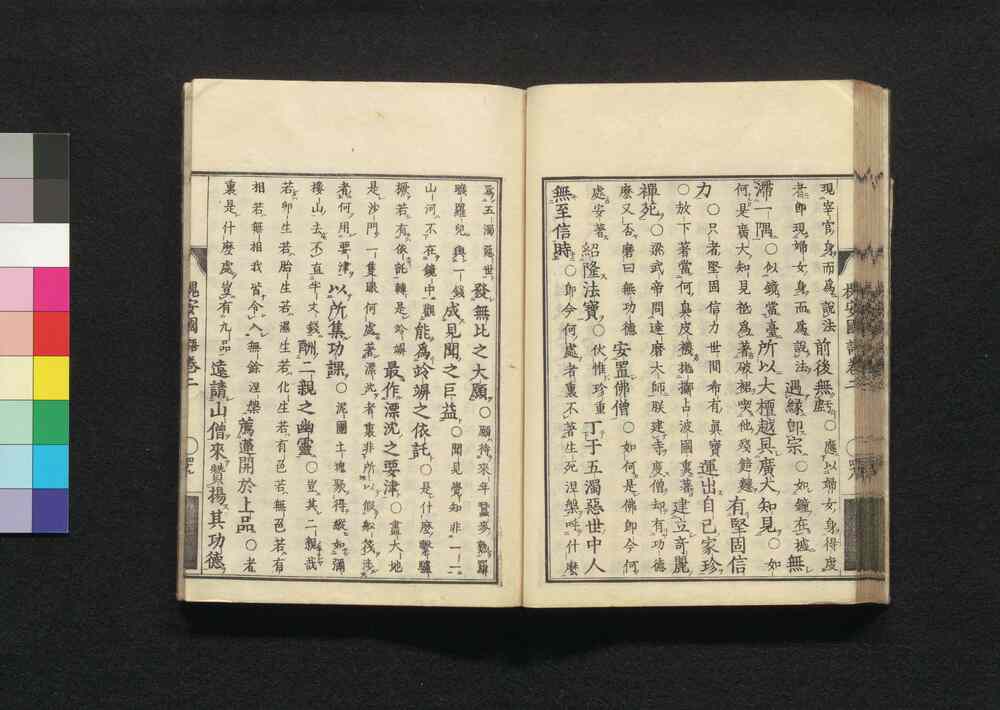 現宰官身而爲說法前後無虧○應以婦女身得度
者即現婦女身而爲說法遇縁即宗○如鐘在𥴩無
滯一隅○似鏡當臺所以大檀越具廣大知見○如
何是廣大知見祗爲著破裙喫他殘餿有堅固信
力○只者堅固信力世間希有眞寶運出自己家珍
○放下著當何臭皮襪占波國裏著建立奇麗
禪苑○梁武帝問達磨大師朕建寺度僧却有功德
麽又否磨曰無功德安置佛僧○如何是佛即今何
處安著紹隆法寶○伏惟珍重丁于五濁惡世中人
無至信時○即今何處者裏不著生死涅槃呼什麽
爲五濁惡世發無比之大願○願待來年蠶麥熟羅
睺羅兒與一錢成見聞之巨益○聞見覺知非一一
山河不在鏡中觀能爲跉竮之依託○是什麽繫驢
橛若有依託轉是跉竮最作漂沈之要津○盡大地
是沙門一隻眼何處著漂沈者裏非所以假船筏渉
者何用要津以所集功課○泥團土塊聚得縱如彌
樓山去不直半文錢酬二親之幽靈○豈其二親哉
若卵生若胎生若濕生若化生若有色若無色若有
相若無相我皆令入無餘涅槃薦蓮開於上品○者
裏是什麽處豈有九品遠請山僧來贊揚其功德
槐安國語卷二
槐安國語卷二